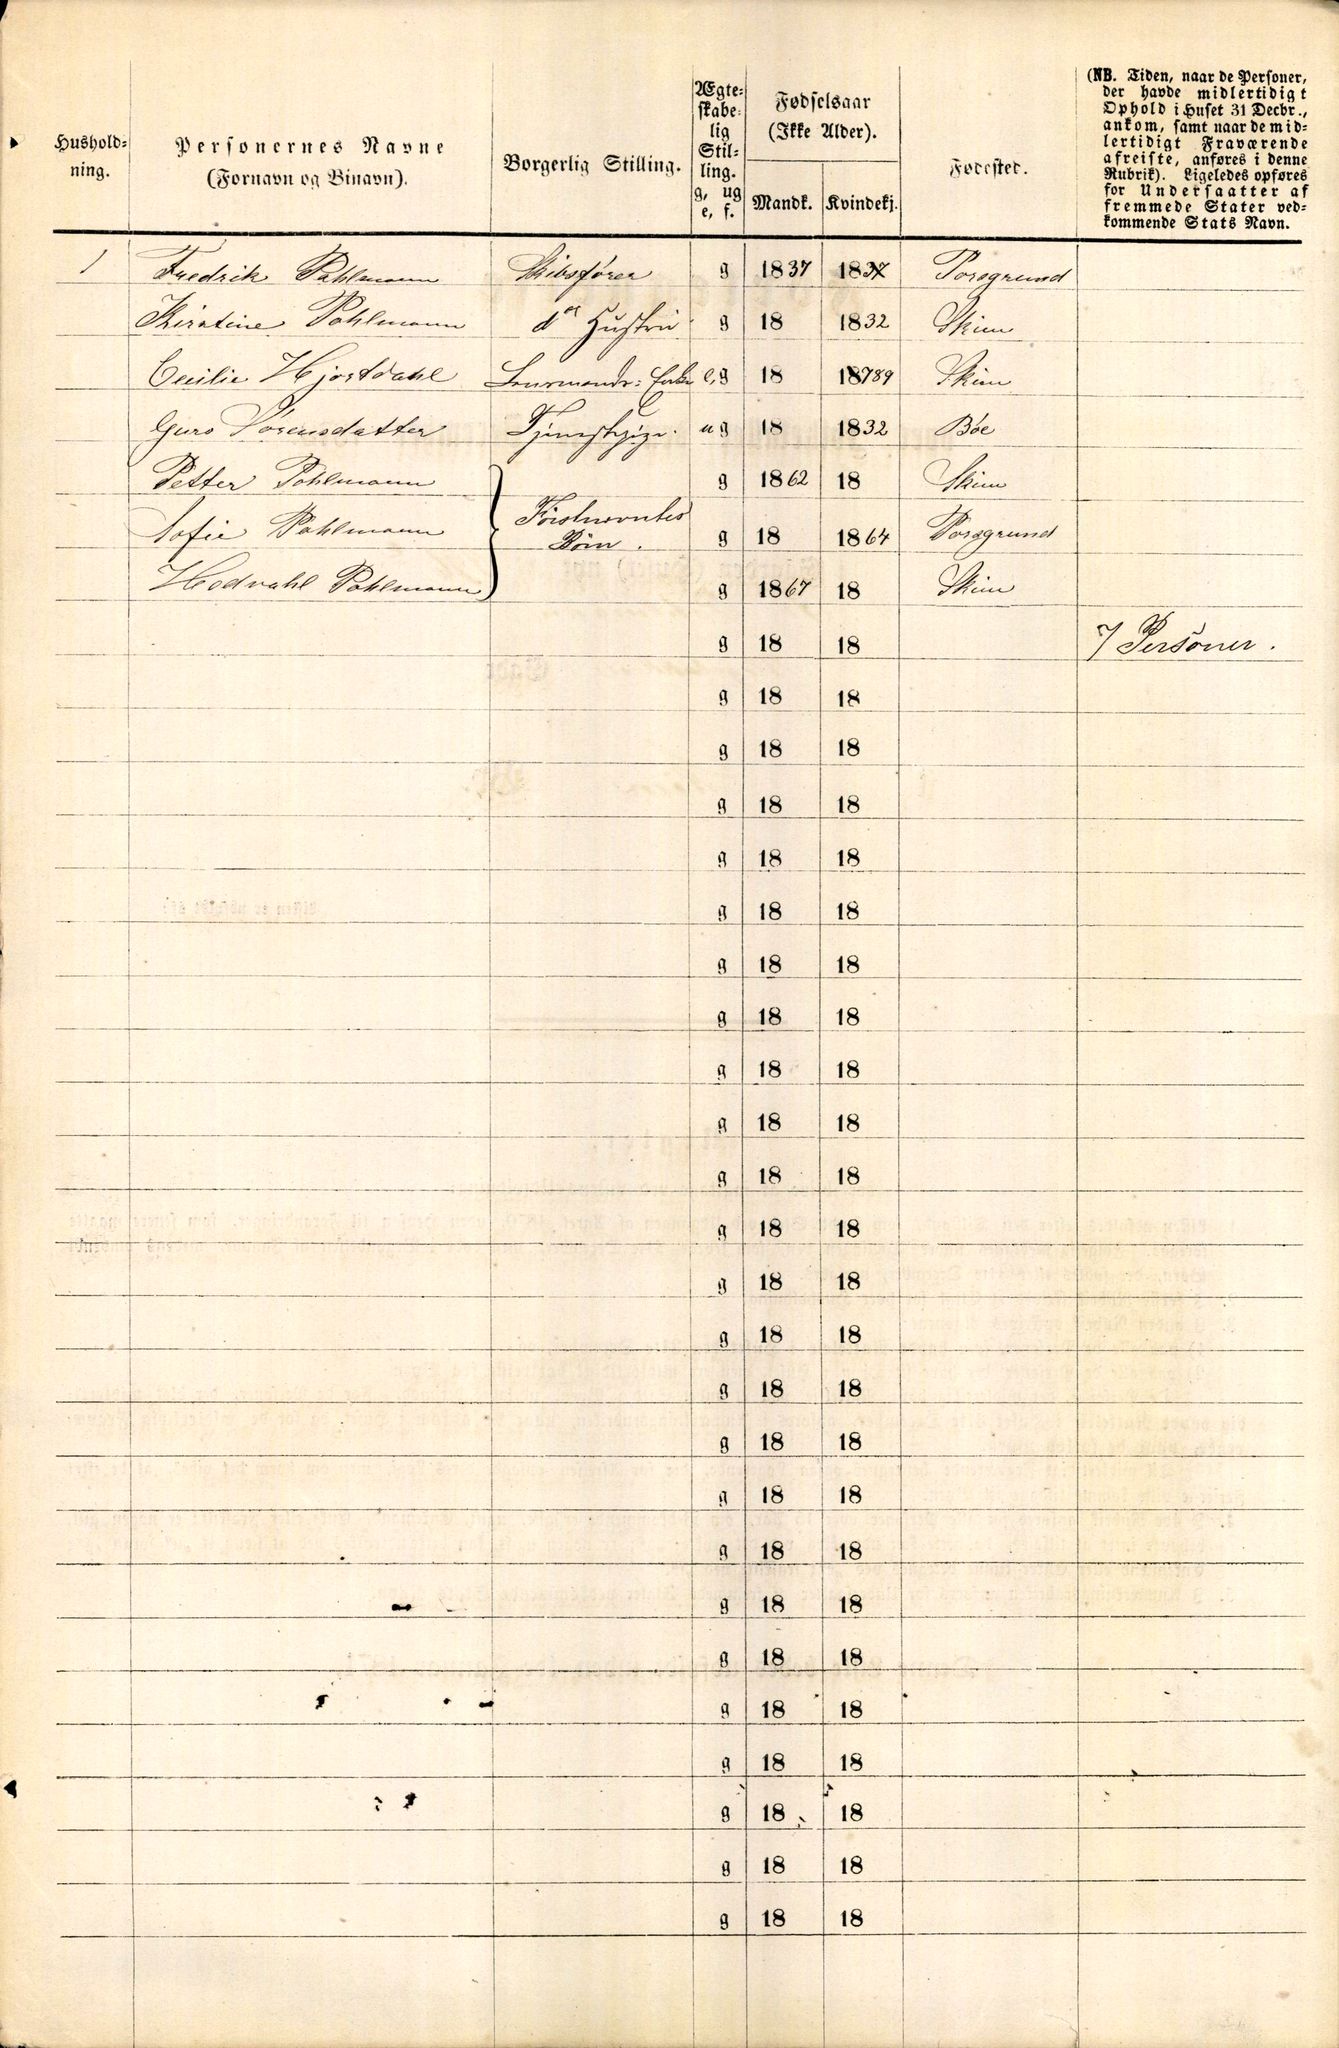 Hushold-
ning.
Personernes Navne
(Fornavn og Binavn).
Borgerlig Stilling.
Ægte-
skabe-
lig
Stil-
ling.
g, ug
e, f.
Fødselsaar
(Ikke Alder).
Mandk.
Kvindekj.
Fødested.
(NB. Tiden, naar de Personer,
der havde midlertidigt
Ophold i Huset 31 Decbr.,
ankom, samt naar de mid-
lertidigt Fraværende
afreiste, anføres i denne
Rubrik). Ligeledes opføres
for Undersaatter af
fremmede Stater ved-
kommende Stats Navn.
1 Fredrik Pahlmann Skibsfører g 1837 18 Porsgrund
Kirstine Pahlmann d° Hustru g 18 1832 Skien
Cecilie Hjortdahl Lensmands: Enke e, g 18 1789 Skien
Guro Sørensdatter Tjenestepige. u g 18 1832 Bøe
Petter Pahlmann g 1862 18 Skien
Sofie Pahlmann Førstnævntes g 18 1864 Porsgrund
Børn.
Hodvahl Pahlmann g 1867 18 Skien
g 18 18 7 Personer.
g 18 18
g 18 18
g 18 18
g 18 18
g 18 18
g 18 18
g 18 18
g 18 18
g 18 18
g 18 18
g 18 18
g 18 18
g 18 18
g 18 18
g 18 18
g 18 18
g 18 18
g 18 18
g 18 18
g 18 18
g 18 18
g 18 18
g 18 18
g 18 18